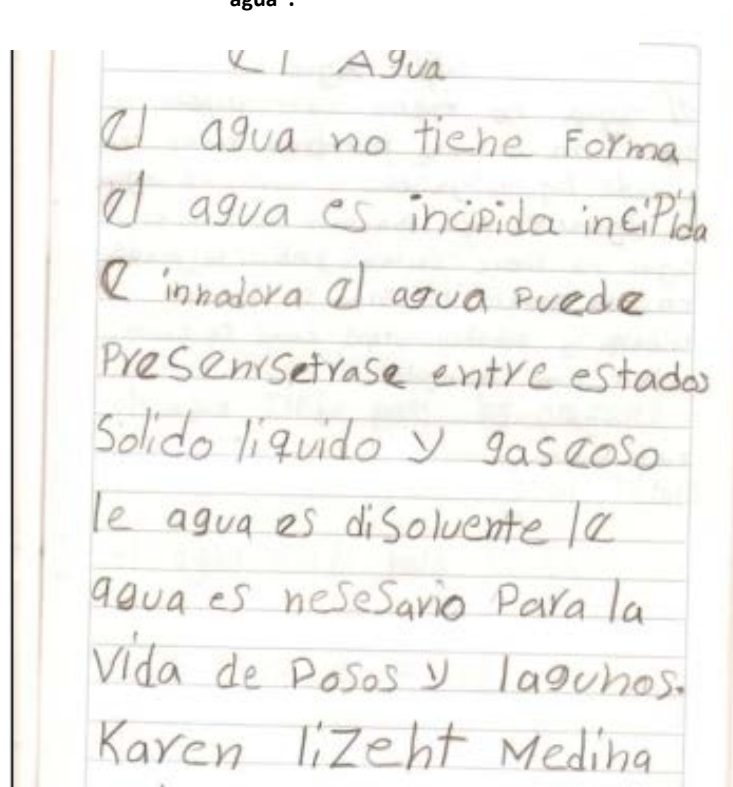 agua".
El Agua
el agua no tiene Forma
el agua es incipida inciPida
e innadora el agua puede
Presenrsetrase entre estados
Solido liquido y gaseoso
le agua es disolvente le
agua es nesesario Para la
Vida de Posos y lagunos.
Karen lizeht Medina